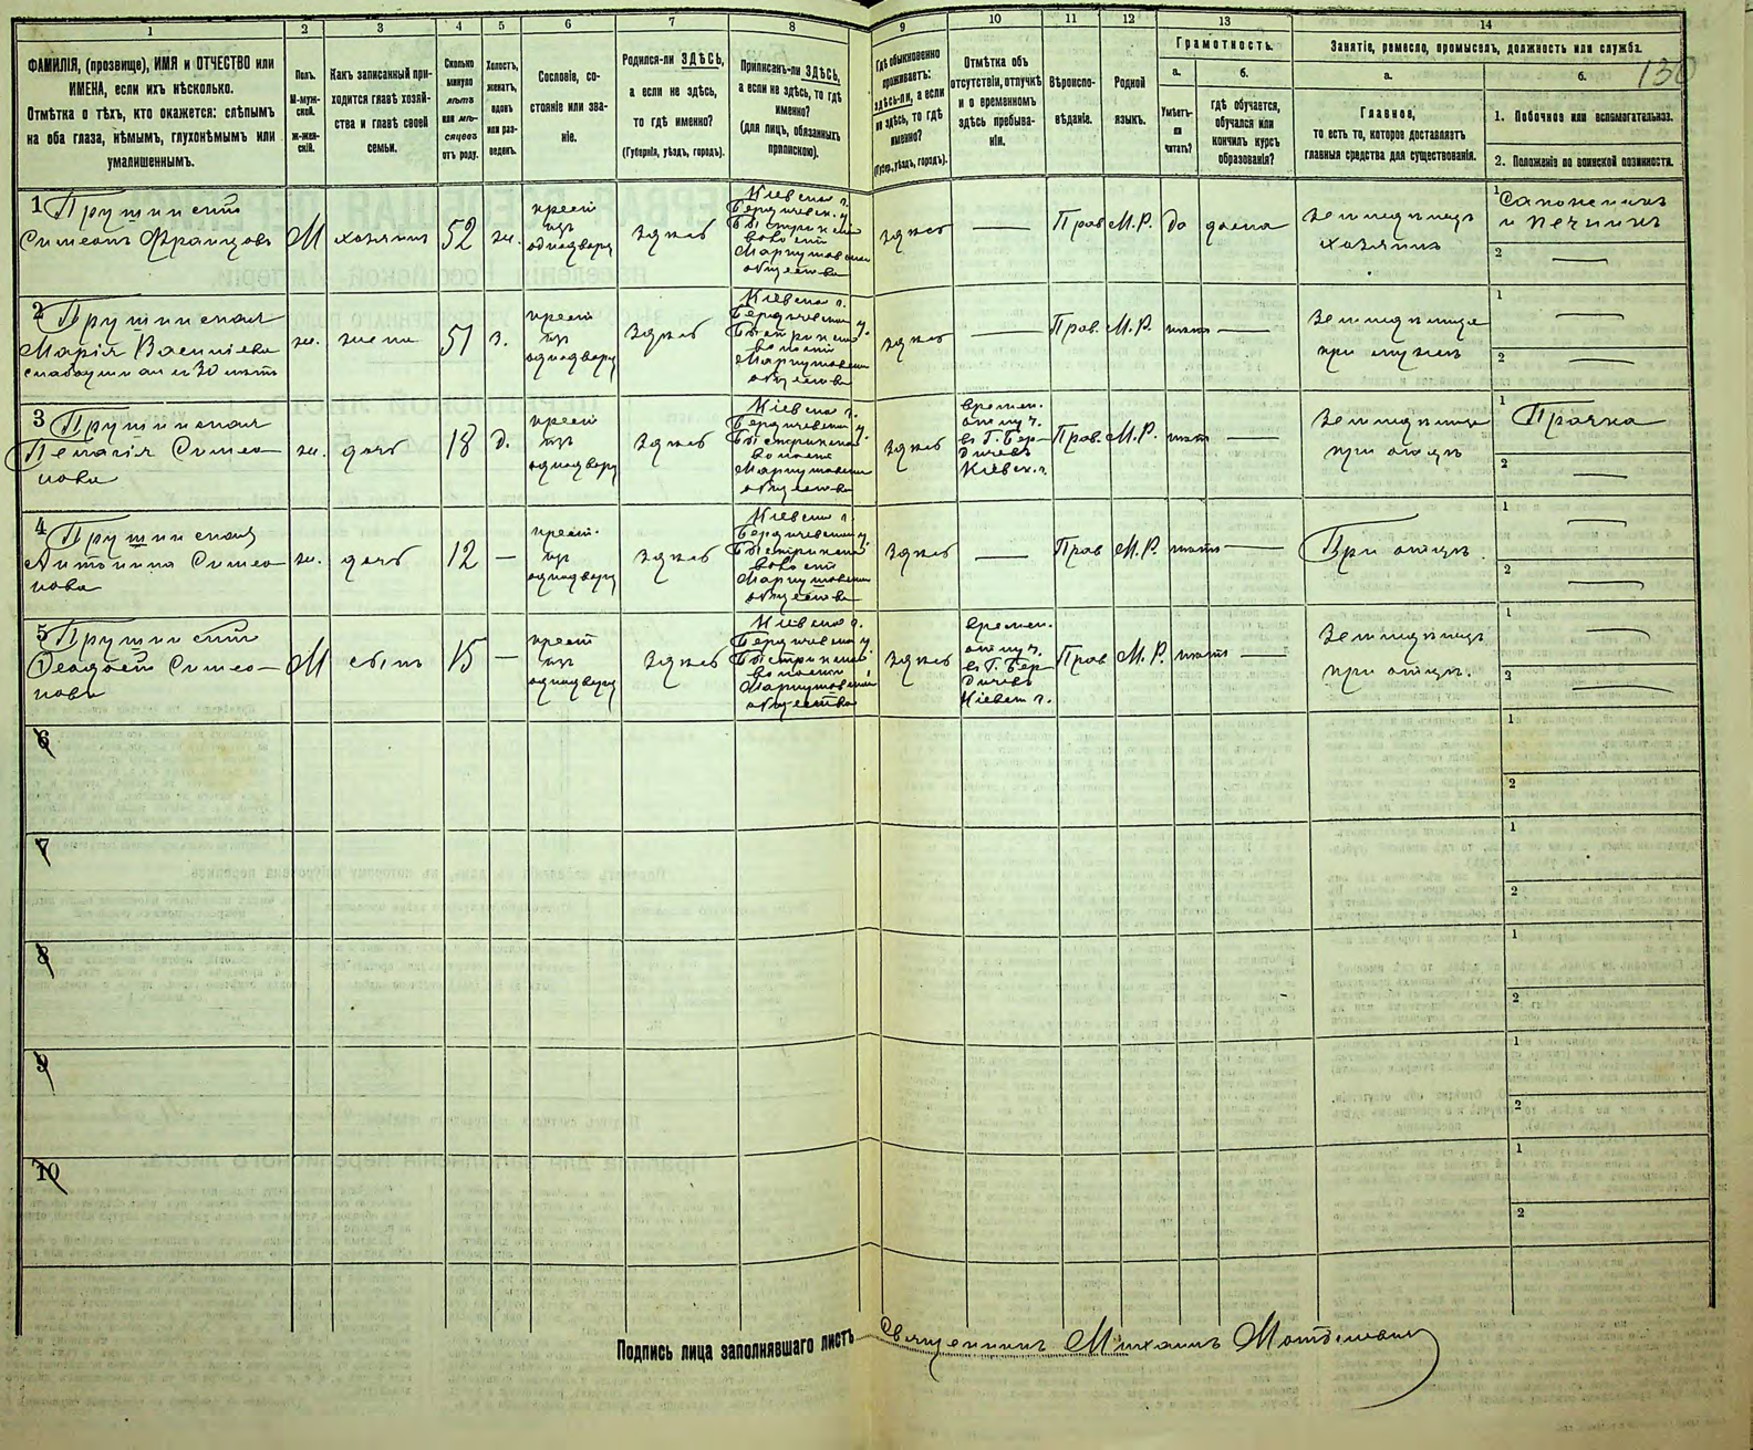 1 2 3 4 5 6 7 8 9 10 11 12 13 14
130
ФАМИЛІЯ, (прозвище), ИМЯ и ОТЧЕСТВО или
ИМЕНА, если ихъ нѣсколько.
Отмѣтка о тѣхъ, кто окажется: слѣпымъ
на оба глаза, нѣмымъ, глухонѣмымъ или
умалишеннымъ.
Полъ.
М-муж-
ской.
Ж-жен-
скій.
Какъ записанный при-
ходится главѣ хозяй-
ства и главѣ своей
семьи.
Сколько
минуло
лѣтъ
или мѣ-
сяцевъ
отъ роду.
Холостъ,
женатъ,
вдовъ
или раз-
веденъ.
Сословіе, со-
стояніе или зва-
ніе.
Родился-ли ЗДѢСЬ,
а если не здѣсь,
то гдѣ именно?
(Губернія, уѣздъ, городъ).
Приписанъ-ли ЗДѢСЬ,
а если не здѣсь, то гдѣ
именно?
(для лицъ, обязанныхъ
припискою).
Гдѣ обыкновенно
проживаетъ:
здѣсь-ли, а если
не здѣсь, то гдѣ
именно?
(Губер., уѣздъ, городъ).
Отмѣтка объ
отсутствіи, отлучкѣ
и о временномъ
здѣсь пребыва-
ніи.
Вѣроиспо-
вѣданіе.
Родной
языкъ.
Грамотность.
а.
Умѣетъ-
ли
читать?
б.
гдѣ обучается,
обучался или
кончилъ курсъ
образованія?
Занятіе, ремесло, промыселъ, должность или служба.
а.
Главное,
то есть то, которое доставляетъ
главныя средства для существованія.
б.
1. Побочное или вспомогательное.
2. Положеніе по воинской повинности.
1 Прушинскій
Симеонъ Францовъ
М
хозяинъ
52
ж.
крест.
изъ
однодворц
здѣсь
Кіевской г.
Бердичевск. у.
Быстрикской
волости
Маркушовскаго
общества
здѣсь
—
Прав
М.Р.
да
дома
Земледѣлецъ
хозяинъ
1 Сапожникъ
и печникъ
2 —
2 Прушинская
Марія Василіева
слабоумная съ 30 лѣтъ
ж.
жена
51
з.
крест
изъ
однодворц
здѣсь
Кіевской г.
Бердичевской у.
Быстрикской
волости
Маркушовскаго
общества
здѣсь
—
Прав.
М.Р.
нѣтъ
—
Земледѣлица
при мужѣ
1 —
2 —
3 Прушинская
Пелагія Симео-
нова
ж.
дочь
18
д.
крест
изъ
однодворц
здѣсь
Кіевской г.
Бердичевской у.
Быстрикской
волости
Маркушовскаго
общества
здѣсь
времен.
отлуч.
въ Г. Бер-
дичевъ
Кіевск. г.
Прав.
М.Р.
нѣтъ
—
Земледѣлица
при отцѣ
1 Прачка
2 —
4 Прушинская
Антонина Симео
нова
ж.
дочь
12
—
крест.
изъ
однодворц
здѣсь
Кіевской г.
Бердичевской у.
Быстрикской
волости
Маркушовскаго
общества
здѣсь
—
Прав
М.Р.
нѣтъ
—
При отцѣ.
1 —
2 —
5 Прушинскій
Феодосій Симео-
новъ
М
сынъ
15
—
крест
изъ
однодворц
здѣсь
Кіевской г.
Бердичевской у.
Быстрикской
волости
Маркушовской
общества
здѣсь
времен.
отлуч.
въ Г. Бер-
дичевъ
Кіевск г.
Прав
М.Р.
нѣтъ
—
Земледѣлецъ
при отцѣ.
1 —
2 —
6
1
2
7
1
2
8
1
2
9
1
2
10
1
2
Подпись лица заполнявшаго листъ Священникъ Михаилъ